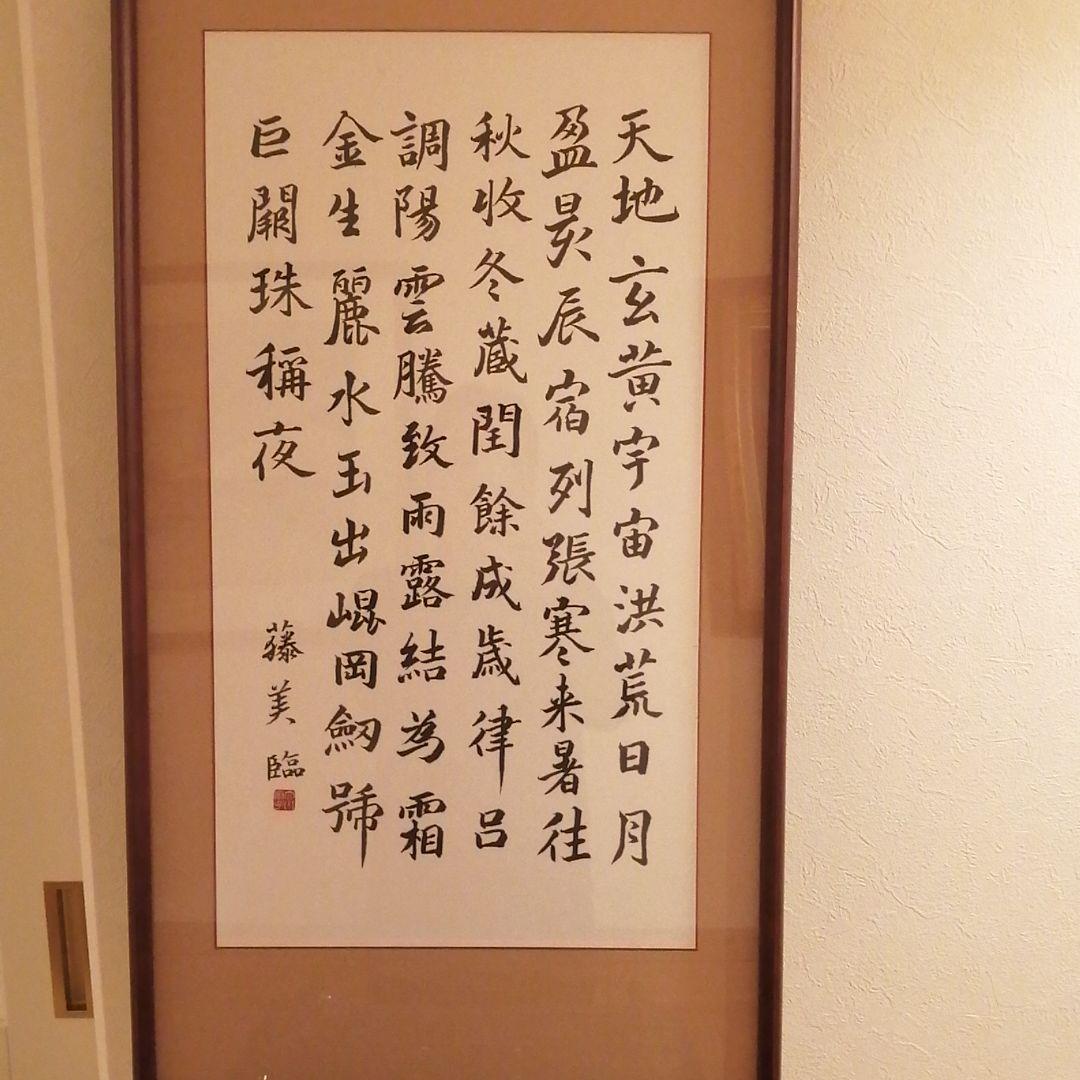 天地玄黄宇宙洪荒日月
盈昃辰宿列張寒来暑往
秋收冬蔵閏餘成歳律呂
調陽雲騰致雨露結為霜
金生麗水玉出崐岡劔号
巨闕珠稱夜
藤美臨